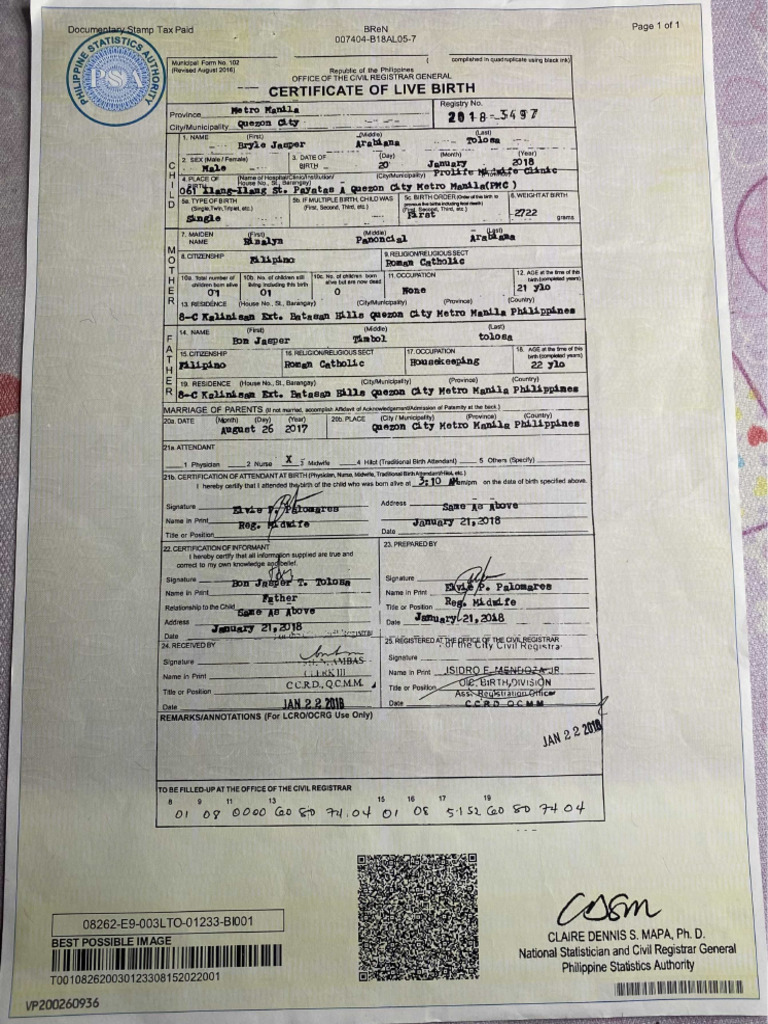 Documentary Stamp Tax Paid
BReN
007404-B18AL05-7
Page 1 of 1
PHILIPPINE STATISTICS AUTHORITY
PSA
Municipal Form No. 102
(Revised August 2016)
Republic of the Philippines
OFFICE OF THE CIVIL REGISTRAR GENERAL
(accomplished in quadruplicate using black ink)
CERTIFICATE OF LIVE BIRTH
Province Metro Manila
Registry No.
City/Municipality Quezon City
2018-3497
CHILD
1. NAME (First) (Middle) (Last)
Bryle Jasper Arabiana Tolosa
2. SEX (Male / Female) 3. DATE OF BIRTH (Day) (Month) (Year)
Male 20 January 2018
4. PLACE OF BIRTH (Name of Hospital/Clinic/Institution/ House No., St., Barangay) (City/Municipality) Prolife Midwife Clinic
061 Ilang-Ilang St. Payatas A Quezon City Metro Manila(PMC)
5a. TYPE OF BIRTH (Single, Twin, Triplet, etc.) 5b. IF MULTIPLE BIRTH, CHILD WAS (First, Second, Third, etc.) 5c. BIRTH ORDER (First, Second, Third, etc.) 6. WEIGHT AT BIRTH
Single First 2722 grams
MOTHER
7. MAIDEN NAME (First) (Middle) (Last)
Rinalyn Panoncial Arabiana
8. CITIZENSHIP 9. RELIGION/RELIGIOUS SECT
Filipino Roman Catholic
10a. Total number of children born alive 10b. No. of children still living including this birth 10c. No. of children born alive but are now dead 11. OCCUPATION 12. AGE at the time of this birth (completed years)
01 01 0 None 21 ylo
13. RESIDENCE (House No., St., Barangay) (City/Municipality) (Province) (Country)
8-C Kalinisan Ext. Batasan Hills Quezon City Metro Manila Philippines
FATHER
14. NAME (First) (Middle) (Last)
Bon Jasper Timbol tolosa
15. CITIZENSHIP 16. RELIGION/RELIGIOUS SECT 17. OCCUPATION 18. AGE at the time of this birth (completed years)
Filipino Roman Catholic Housekeeping 22 ylo
19. RESIDENCE (House No., St., Barangay) (City/Municipality) (Province) (Country)
8-C Kalinisan Ext. Batasan Hills Quezon City Metro Manila Philippines
MARRIAGE OF PARENTS (If not married, accomplish Affidavit of Acknowledgement/Admission of Paternity at the back.)
20a. DATE (Month) (Day) (Year) 20b. PLACE (City / Municipality) (Province) (Country)
August 26 2017 Quezon City Metro Manila Philippines
21a. ATTENDANT
1 Physician 2 Nurse X 3 Midwife 4 Hilot (Traditional Birth Attendant) 5 Others (Specify)
21b. CERTIFICATION OF ATTENDANT AT BIRTH (Physician, Nurse, Midwife, Traditional Birth Attendant/Hilot, etc.)
I hereby certify that I attended the birth of the child who was born alive at 3:10 AM am/pm on the date of birth specified above.
Signature Address Same As Above
Name in Print Elvie P. Palomares
Title or Position Reg. Midwife Date January 21,2018
22. CERTIFICATION OF INFORMANT
I hereby certify that all information supplied are true and correct to my own knowledge and belief.
Signature
Name in Print Bon Jasper T. Tolosa
Relationship to the Child Father
Address Same As Above
Date January 21,2018
23. PREPARED BY
Signature
Name in Print Elvie P. Palomares
Title or Position Reg. Midwife
Date January 21,2018
24. RECEIVED BY
Signature
Name in Print AMBAS
Title or Position CLERK III
C.C.R.D., Q.C.M.M.
Date JAN 22 2018
25. REGISTERED AT THE OFFICE OF THE CIVIL REGISTRAR
of the City Civil Registrar
Signature
Name in Print ISIDRO E. MENDOZA JR
Title or Position OIC, BIRTH DIVISION
Ass. Registration Officer
Date C.C.R.D. Q.C.M.M
REMARKS/ANNOTATIONS (For LCRO/OCRG Use Only)
JAN 22 2018
TO BE FILLED-UP AT THE OFFICE OF THE CIVIL REGISTRAR
8 9 11 13 15 16 17 19
01 08 0000 60 80 74.04 01 08 5152 60 80 74 04
08262-E9-003LTO-01233-BI001
BEST POSSIBLE IMAGE
T001082620030123308152022001
VP200260936
CLAIRE DENNIS S. MAPA, Ph. D.
National Statistician and Civil Registrar General
Philippine Statistics Authority